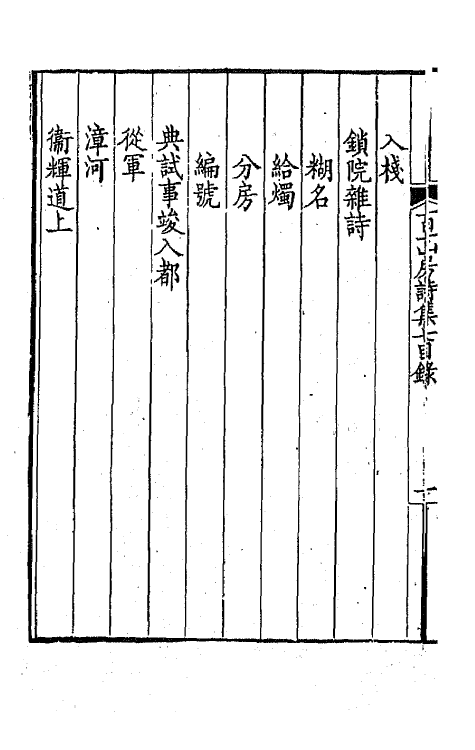 百一山房詩集七目錄 一
入棧
鎖院雜詩
糊名
給燭
分房
編號
典試事竣入都
從軍
漳河
衞輝道上